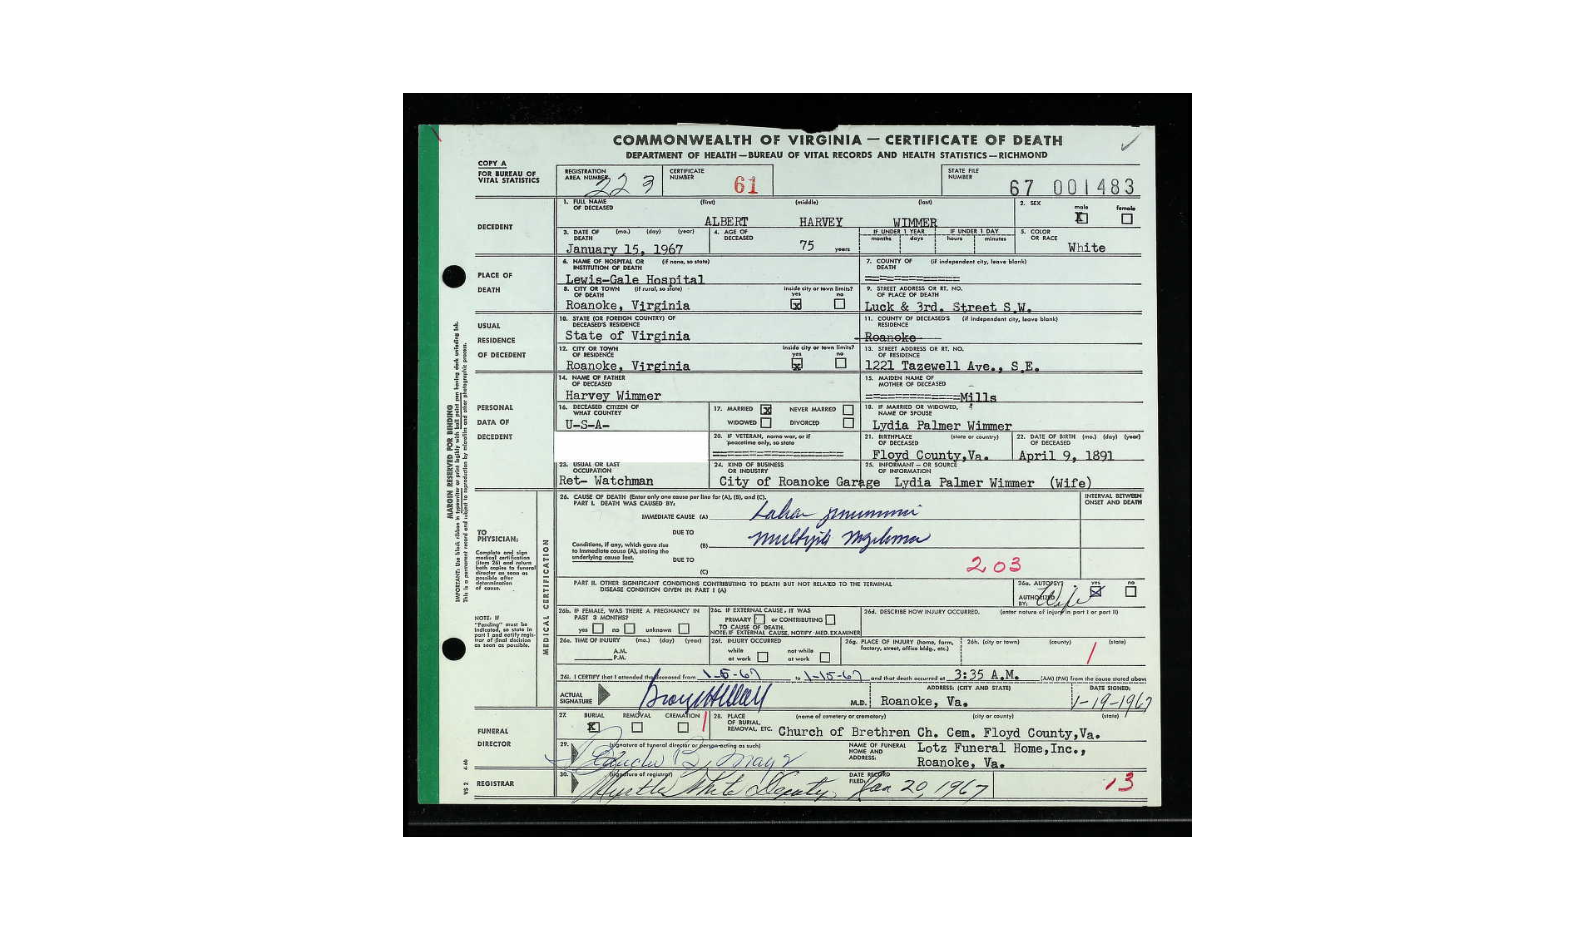 COMMONWEALTH OF VIRGINIA — CERTIFICATE OF DEATH
DEPARTMENT OF HEALTH—BUREAU OF VITAL RECORDS AND HEALTH STATISTICS—RICHMOND
COPY A
FOR BUREAU OF
VITAL STATISTICS
REGISTRATION
AREA NUMBER 223
CERTIFICATE
NUMBER 61
STATE FILE
NUMBER 67 001483
DECEDENT
1. FULL NAME (first) (middle) (last)
OF DECEASED
ALBERT HARVEY WIMMER
2. SEX male female
X
3. DATE OF (mo.) (day) (year)
DEATH
January 15, 1967
4. AGE OF
DECEASED 75 years
IF UNDER 1 YEAR IF UNDER 1 DAY
months days hours minutes
5. COLOR
OR RACE White
PLACE OF
DEATH
6. NAME OF HOSPITAL OR (if none, so state)
INSTITUTION OF DEATH
Lewis-Gale Hospital
7. COUNTY OF (if independent city, leave blank)
DEATH
=============
8. CITY OR TOWN (if rural, so state) inside city or town limits?
OF DEATH yes no
Roanoke, Virginia X
9. STREET ADDRESS OR RT. NO.
OF PLACE OF DEATH
Luck & 3rd. Street S.W.
USUAL
RESIDENCE
OF DECEDENT
10. STATE (OR FOREIGN COUNTRY) OF
DECEASED'S RESIDENCE
State of Virginia
11. COUNTY OF DECEASED'S (if independent city, leave blank)
RESIDENCE
Roanoke
12. CITY OR TOWN inside city or town limits?
OF RESIDENCE yes no
Roanoke, Virginia X
13. STREET ADDRESS OR RT. NO.
OF RESIDENCE
1221 Tazewell Ave., S.E.
PERSONAL
DATA OF
DECEDENT
14. NAME OF FATHER
OF DECEASED
Harvey Wimmer
15. MAIDEN NAME OF
MOTHER OF DECEASED
=============Mills
16. DECEASED CITIZEN OF
WHAT COUNTRY
U-S-A-
17. MARRIED X NEVER MARRIED
WIDOWED DIVORCED
18. IF MARRIED OR WIDOWED,
NAME OF SPOUSE
Lydia Palmer Wimmer
20. IF VETERAN, name war, or if
peacetime only, so state
==================
21. BIRTHPLACE (state or country)
OF DECEASED
Floyd County,Va.
22. DATE OF BIRTH (mo.) (day) (year)
OF DECEASED
April 9, 1891
23. USUAL OR LAST
OCCUPATION
Ret- Watchman
24. KIND OF BUSINESS
OR INDUSTRY
City of Roanoke Garage
25. INFORMANT — OR SOURCE
OF INFORMATION
Lydia Palmer Wimmer (Wife)
MARGIN RESERVED FOR BINDING
TO
PHYSICIAN:
Complete and sign
medical certification
(item 26) and return
both copies to funeral
director as soon as
possible after
determination
of cause.
NOTE: If
"Pending" must be
indicated, so state in
part I and notify regis-
trar of final decision
as soon as possible.
MEDICAL CERTIFICATION
26. CAUSE OF DEATH (Enter only one cause per line for (A), (B), and (C).
PART I. DEATH WAS CAUSED BY:
INTERVAL BETWEEN
ONSET AND DEATH
IMMEDIATE CAUSE (A) Lobar pneumonia
DUE TO
(B) multiple myeloma
Conditions, if any, which gave rise
to immediate cause (A), stating the
underlying cause last.
DUE TO
(C)
203
PART II. OTHER SIGNIFICANT CONDITIONS CONTRIBUTING TO DEATH BUT NOT RELATED TO THE TERMINAL
DISEASE CONDITION GIVEN IN PART I (A)
26a. AUTOPSY? yes no
AUTHORIZED
BY: Wife X
26b. IF FEMALE, WAS THERE A PREGNANCY IN
PAST 3 MONTHS?
yes no unknown
26c. IF EXTERNAL CAUSE, IT WAS
PRIMARY or CONTRIBUTING
TO CAUSE OF DEATH.
NOTE: IF EXTERNAL CAUSE, NOTIFY MED. EXAMINER
26d. DESCRIBE HOW INJURY OCCURRED. (enter nature of injury in part I or part II)
26e. TIME OF INJURY (mo.) (day) (year)
A.M.
P.M.
26f. INJURY OCCURRED
while at work not while at work
26g. PLACE OF INJURY (home, farm,
factory, street, office bldg., etc.)
26h. (city or town) (county) (state)
26i. I CERTIFY that I attended the deceased from 1-5-67 to 1-15-67 and that death occurred at 3:35 A.M. (AM) (PM) from the cause stated above
ACTUAL
SIGNATURE
M.D.
ADDRESS: (CITY AND STATE)
Roanoke, Va.
DATE SIGNED:
1-19-1967
FUNERAL
DIRECTOR
27. BURIAL REMOVAL CREMATION
X
28. PLACE (name of cemetery or crematory) (city or county) (state)
OF BURIAL,
REMOVAL, ETC. Church of Brethren Ch. Cem. Floyd County,Va.
29. (signature of funeral director or person acting as such)
NAME OF FUNERAL
HOME AND
ADDRESS:
Lotz Funeral Home,Inc.,
Roanoke, Va.
REGISTRAR
30. (signature of registrar)
Myrtle White Deputy
DATE RECORD
FILED: Jan 20, 1967
13
VS 2